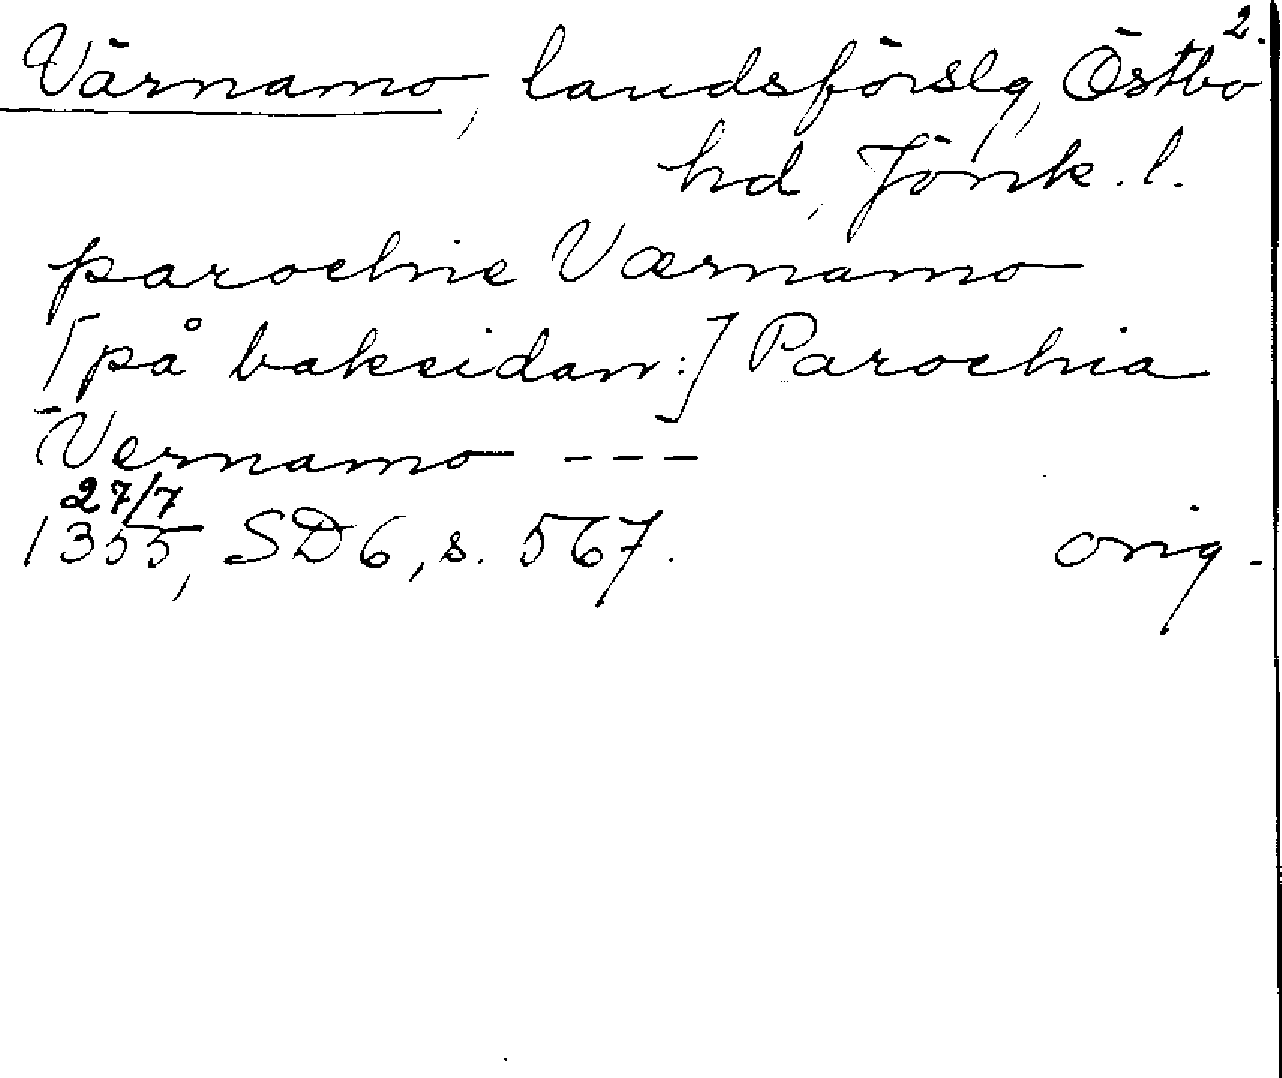 2.
Värnamo, landsförslg, Östbo
hd, Jönk. l.
parochie Værnamo
[på baksidan:] Parochia
Vernamo ---
27/7
1355, SD 6, s. 567. orig.